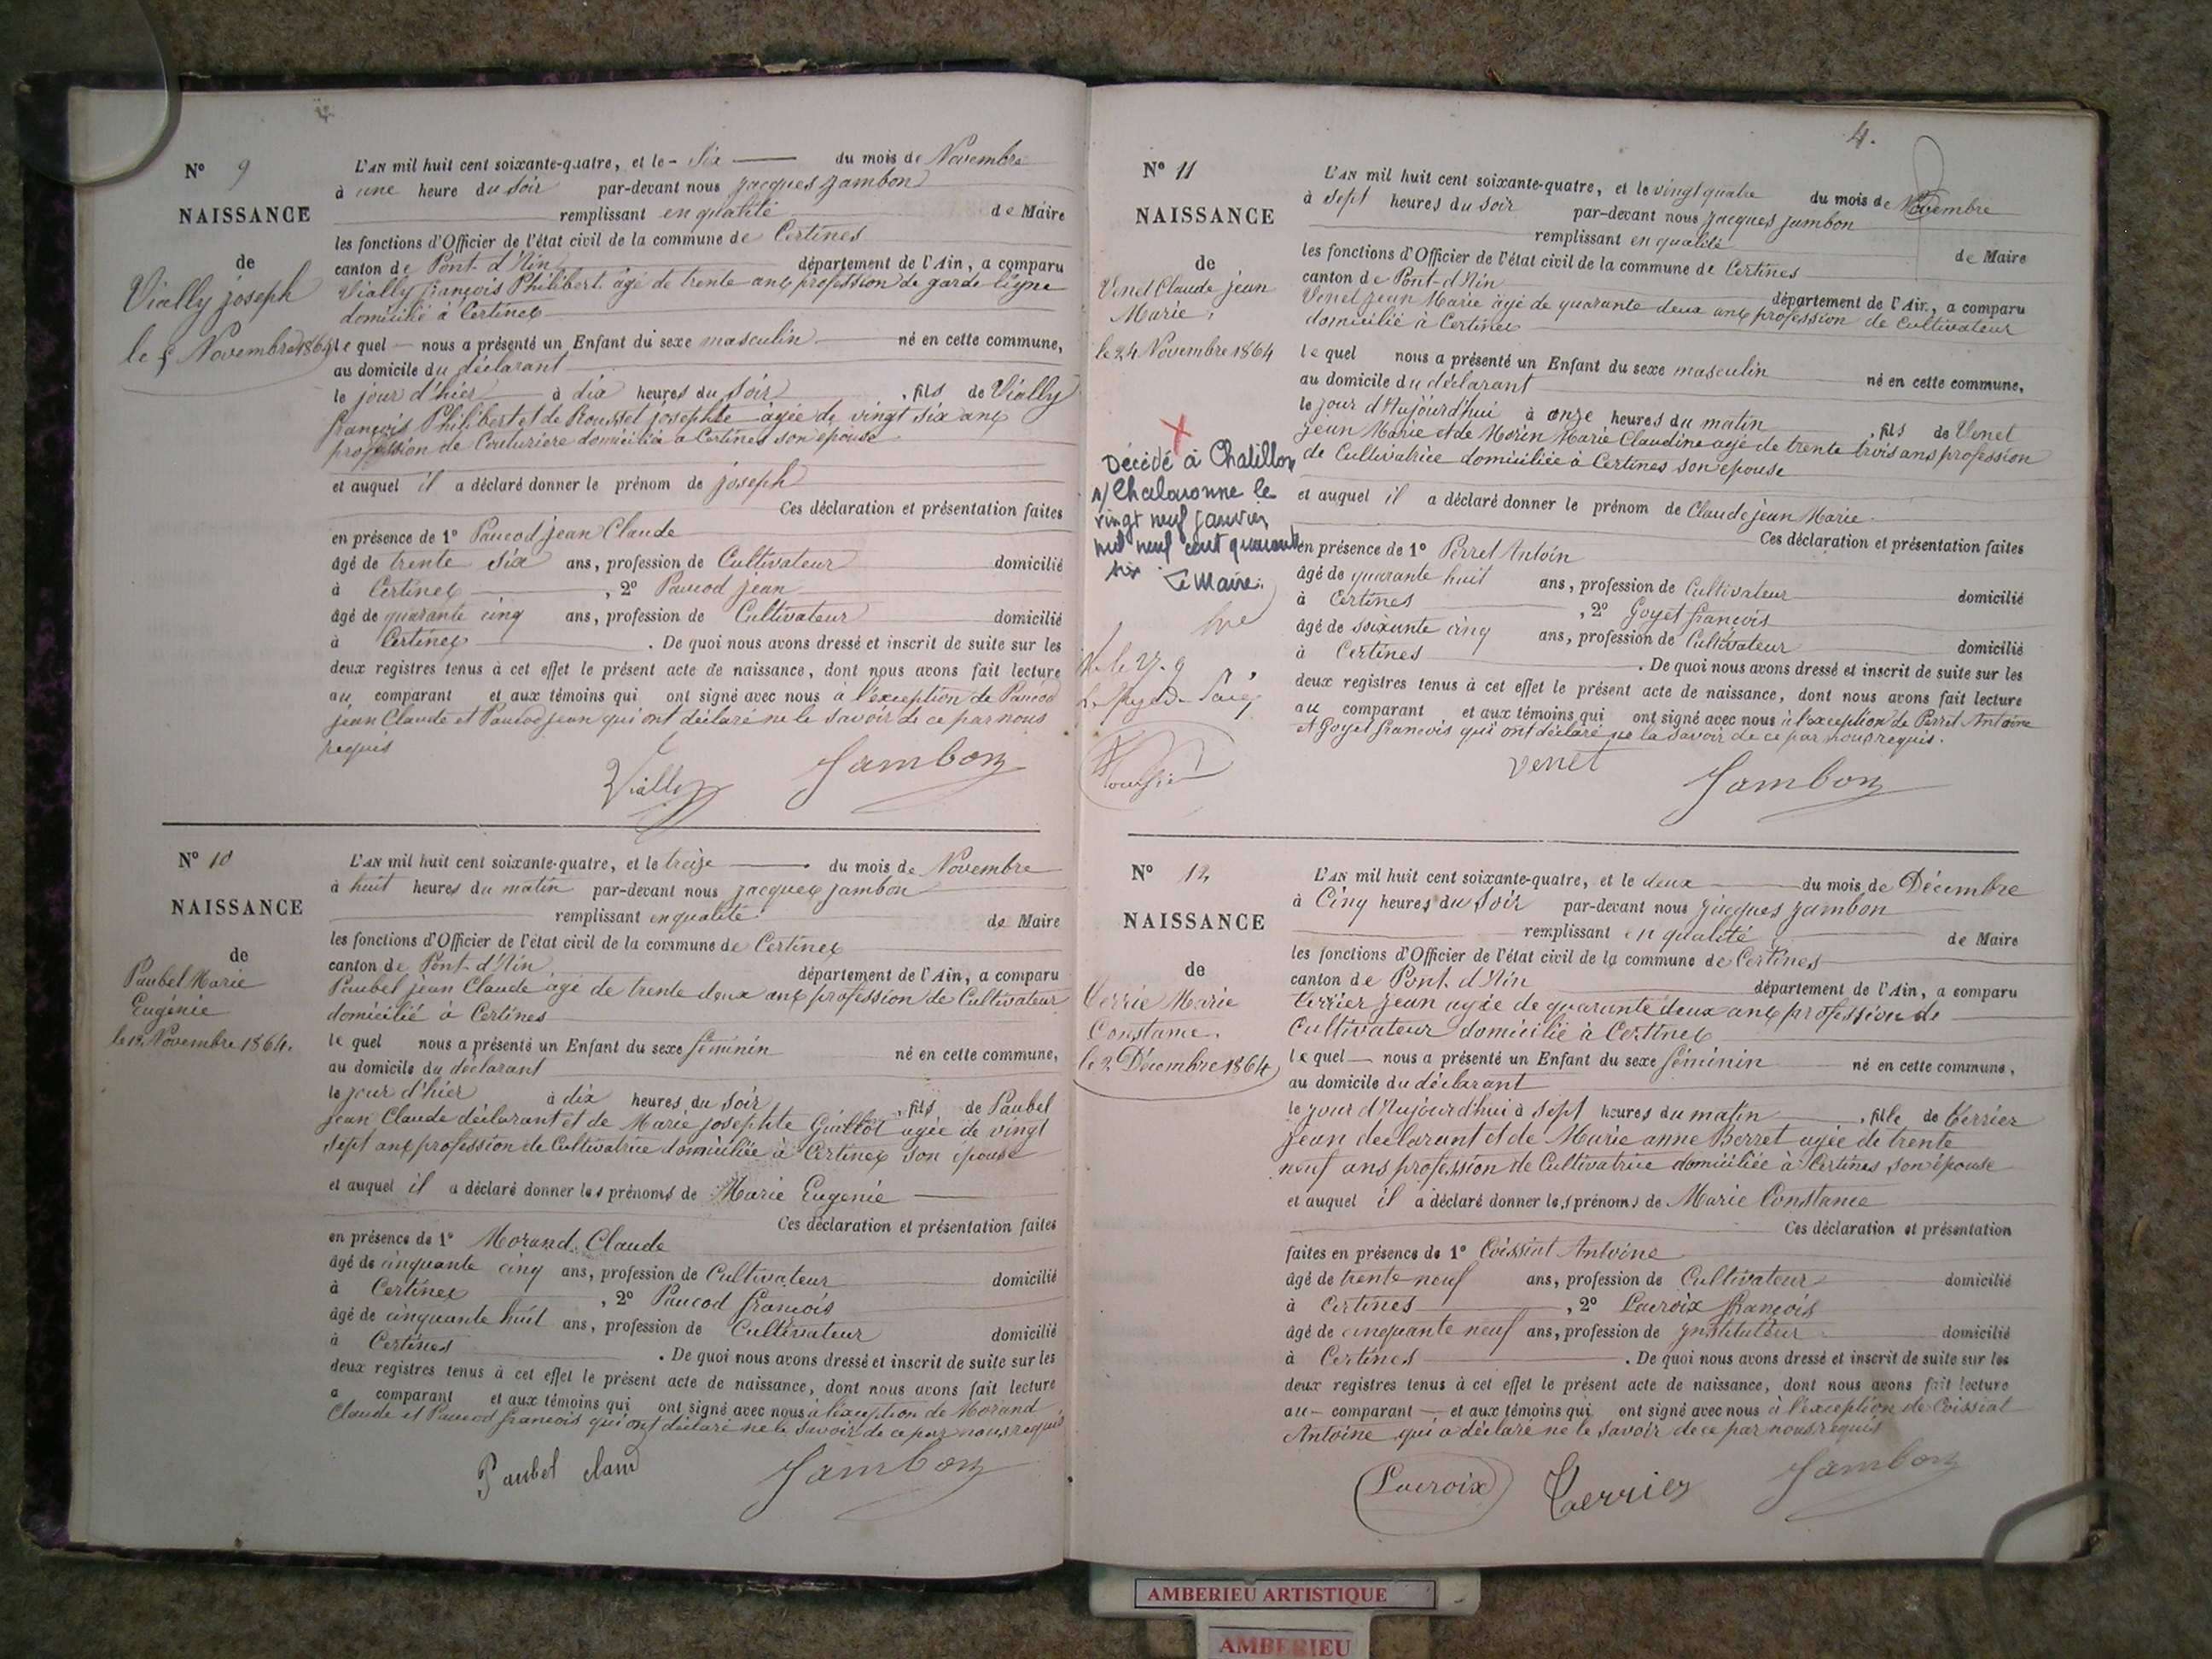 N° 9
NAISSANCE
de
Vially joseph
le 5 Novembre 1864
L'AN mil huit cent soixante-quatre, et le Six du mois de Novembre
à une heure du soir par-devant nous jacques jambon
remplissant en qualité de Maire
les fonctions d'Officier de l'état civil de la commune de Certines
canton de Pont-d'Ain département de l'Ain, a comparu
Vially françois Philibert âgé de trente ans profession de garde ligne
domicilié à Certines
le quel nous a présenté un Enfant du sexe masculin né en cette commune,
au domicile du déclarant
le jour d'hier à dix heures du Soir, fils de Vially
françois Philibert et de Roussel josephte âgée de vingt six ans
profession de Couturiere domiciliée à Certines son epouse
et auquel il a déclaré donner le prénom de joseph
Ces déclaration et présentation faites
en présence de 1° Paucod jean Claude
âgé de trente six ans, profession de Cultivateur domicilié
à Certines, 2° Paucod jean
âgé de quarante cinq ans, profession de Cultivateur domicilié
à Certines. De quoi nous avons dressé et inscrit de suite sur les
deux registres tenus à cet effet le présent acte de naissance, dont nous avons fait lecture
au comparant et aux témoins qui ont signé avec nous à l'exception de Paucod
jean Claude et Paucod jean qui ont déclaré ne le savoir de ce par nous
requis
Vially Jambon
N° 10
NAISSANCE
de
Paubel Marie
Eugénie
le 12 Novembre 1864.
L'AN mil huit cent soixante-quatre, et le treize du mois de Novembre
à huit heures du matin par-devant nous jacques jambon
remplissant en qualité de Maire
les fonctions d'Officier de l'état civil de la commune de Certines
canton de Pont-d'Ain département de l'Ain, a comparu
Paubel jean Claude âgé de trente deux ans profession de Cultivateur
domicilié à Certines
le quel nous a présenté un Enfant du sexe féminin né en cette commune,
au domicile du déclarant
le jour d'hier à dix heures du soir, fils de Paubel
jean Claude déclarant et de Marie josephte Guillot agée de vingt
sept ans profession de Cultivatrice domiciliée à Certines son épouse
et auquel il a déclaré donner les prénoms de Marie Eugenie
Ces déclaration et présentation faites
en présence de 1° Morand Claude
âgé de cinquante cinq ans, profession de Cultivateur domicilié
à Certines, 2° Paucod françois
âgé de cinquante huit ans, profession de Cultivateur domicilié
à Certines. De quoi nous avons dressé et inscrit de suite sur les
deux registres tenus à cet effet le présent acte de naissance, dont nous avons fait lecture
a comparant et aux témoins qui ont signé avec nous à l'exception de Morand
Claude et Paucod francois qui ont déclaré ne le savoir de ce par nous requis
Paubel claud Jambon
4.
N° 11
NAISSANCE
de
Venet Claude jean
Marie,
le 24 Novembre 1864
Décédé à Chatillon
s/ Chalaronne le
vingt neuf janvier
mil neuf cent quarante
six
Le Maire.
L'AN mil huit cent soixante-quatre, et le vingt quatre du mois de Novembre
à Sept heures du Soir par-devant nous jacques jambon
remplissant en qualité de Maire
les fonctions d'Officier de l'état civil de la commune de Certines
canton de Pont-d'Ain département de l'Ain, a comparu
Venet jean Marie âgé de quarante deux ans profession de Cultivateur
domicilié à Certines
le quel nous a présenté un Enfant du sexe masculin né en cette commune,
au domicile du déclarant
le jour d'Aujourd'hui à onze heures du matin, fils de Venet
jean Marie et de Morin Marie Claudine agé de trente trois ans profession
de Cultivatrice domiciliée à Certines son epouse
et auquel il a déclaré donner le prénom de Claude jean Marie
Ces déclaration et présentation faites
en présence de 1° Perret Antoin
âgé de quarante huit ans, profession de Cultivateur domicilié
à Certines, 2° Goyet françois
âgé de soixante cinq ans, profession de Cultivateur domicilié
à Certines. De quoi nous avons dressé et inscrit de suite sur les
deux registres tenus à cet effet le présent acte de naissance, dont nous avons fait lecture
au comparant et aux témoins qui ont signé avec nous à l'exception de Perret Antoine
et Goyet francois qui ont déclaré ne la savoir de ce par nous requis.
venet Jambon
N° 12
NAISSANCE
de
Terrie Marie
Constance.
le 2 Décembre 1864
L'AN mil huit cent soixante-quatre, et le deux du mois de Décembre
à Cinq heures du Soir par-devant nous jacques jambon
remplissant en qualité de Maire
les fonctions d'Officier de l'état civil de la commune de Certines
canton de Pont-d'Ain département de l'Ain, a comparu
Terrier jean agée de quarante deux ans profession de
Cultivateur domicilié à Certines
le quel nous a présenté un Enfant du sexe féminin né en cette commune,
au domicile du déclarant
le jour d'Aujourd'hui à Sept heures du matin, fille de Terrier
jean declarant et de Marie anne Berret agée de trente
neuf ans profession de Cultivatrice domiciliée à Certines son épouse
et auquel il a déclaré donner les prénoms de Marie Constance
Ces déclaration et présentation
faites en présence de 1° Coissiat Antoine
âgé de trente neuf ans, profession de Cultivateur domicilié
à Certines, 2° Lacroix françois
âgé de cinquante neuf ans, profession de jnstituteur domicilié
à Certines. De quoi nous avons dressé et inscrit de suite sur les
deux registres tenus à cet effet le présent acte de naissance, dont nous avons fait lecture
au comparant et aux témoins qui ont signé avec nous à l'exception de Coissiat
Antoine qui a déclaré ne le savoir de ce par nous requis
Lacroix Terrier Jambon
AMBERIEU ARTISTIQUE
AMBERIEU